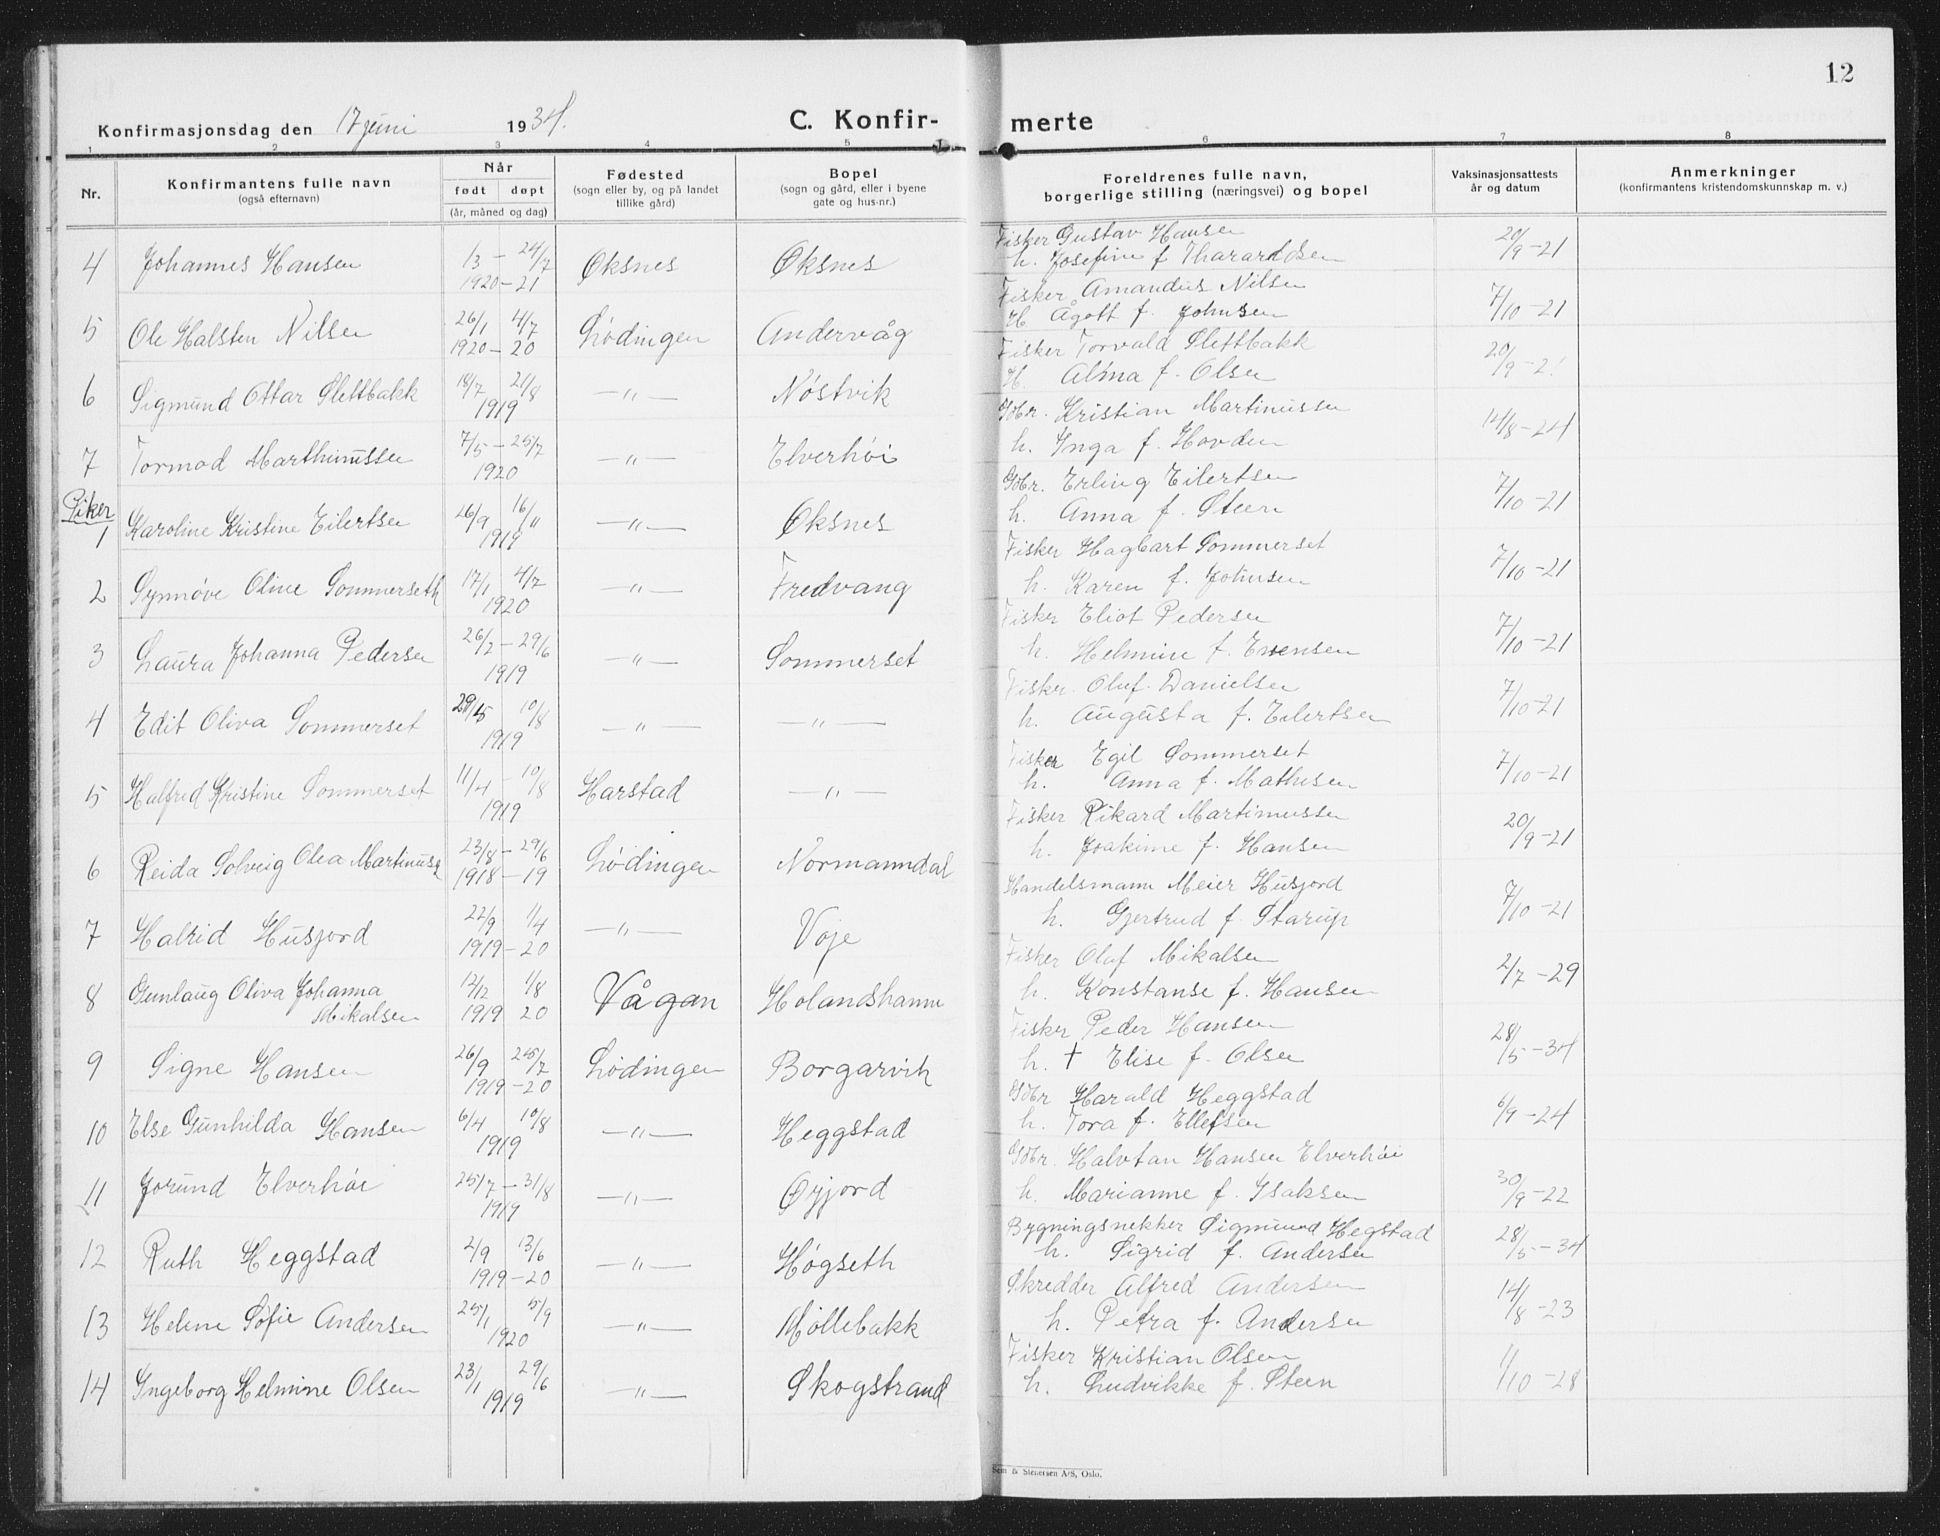 12
Konfirmasjonsdag den 17 juni 1934.
C. Konfir-
merte
1 2 3 4 5 6 7 8
Nr.
Konfirmantens fulle navn
(også efternavn)
Når
født døpt
(år, måned og dag)
Fødested
(sogn eller by, og på landet
tillike gård)
Bopel
(sogn og gård, eller i byene
gate og hus-nr.)
Foreldrenes fulle navn,
borgerlige stilling (næringsvei) og bopel
Vaksinasjonsattests
år og datum
Anmerkninger
(konfirmantens kristendomskunnskap m. v.)
4 Johannes Hansen 1/3 – 24/7 Øksnes Øksnes Fisker Gustav Hansen 20/9 -21
1920 – 21 h. Josefine f Tharardsen
5 Ole Halsten Nilsen 26/1 4/7 Lødingen Andervåg Fisker Amandus Nilsen 7/10 -21
1920 – 20 H Ågott f. Johnsen
6 Sigmund Ottar Slettbakk 18/7 21/8 —"— Nøstvik Fisker Torvald Slettbakk 20/9 -21
1919 H. Alma f. Olsen
7 Tormod Marthinussen 7/5 – 25/7 —"— Elverhøi Gbr. Kristian Martinussen 14/8 -24
1920 h. Inga f. Hovden
Piker
1 Karoline Kristine Eilertsen 26/9 16/11 —"— Øksnes Gbr. Erling Eilertsen 7/10 -21
1919 h. Anna f. Steen
2 Synnøve Oline Sommerseth 17/1 4/7 —"— Fredvang Fisker Hagbart Sommerset 7/10 -21
1920 h. Karen f. Johnsen
3 Laura Johanna Pedersen 26/2 – 29/6 —"— Sommerset Fisker Eliot Pedersen 7/10 -21
1919 h. Helmine f. Evensen
4 Edit Oliva Sommerset 29/5 10/8 —"— —"— Fisker Oluf Danielsen 7/10 -21
1919 h. Augusta f. Eilertsen
5 Halfrid Kristine Sommerset 11/4 – 10/8 Harstad —"— Fisker Egil Sommerset 7/10 -21
1919 h. Anna f. Mathisen
6 Reida Solveig Olea Martinussen 23/8 – 29/6 Lødingen Normanndal Fisker Rikard Martinussen 20/9 -21
1918 – 19 h. Joakime f. Hansen
7 Halrid Husjord 22/9 1/4 —"— Voje Handelsmann Meier Husjord 7/10 -21
1919 – 20 h. Gjertrud f. Starup
8 Gunlaug Oliva Johanna 12/12 1/8 Vågan Holandshamn Fisker Olaf Mikalsen 2/7 -29
Mikalsen 1919 20 h. Konstanse f. Hansen
9 Signe Hansen 26/9 25/7 Lødingen Borgarvik Fisker Peder Hansen 28/5 -34
1919 – 20 h. † Elise f. Olsen
10 Else Gunhilda Hansen 6/4 10/8 —"— Heggstad Gbr Harald Heggstad 6/9 -24
1919 h. Tora f. Ellefsen
11 Jorund Elverhøi 25/7 – 31/8 —"— Øyjord Gbr. Halvtan Hansen Elverhøi
1919 h. Marianne f. Isaksen 30/9 -22
12 Ruth Heggstad 2/9 13/6 —"— Høgseth Bygningsnekker Sigmund Hegstad 28/5 -34
1919 – 20 h. Sigrid f. Andersen
13 Helene Sofie Andersen 25/1 5/9 —"— Møllebakk Skredder Alfred Andersen 14/8 -23
1920 h. Petra f. Andersen
14 Ingeborg Helmine Olsen 23/1 29/6 —"— Skogstrand Fisker Kristian Olsen 11/10 -28
1919 h. Ludvikke f. Steen
Sem & Stenersen A/S, Oslo.